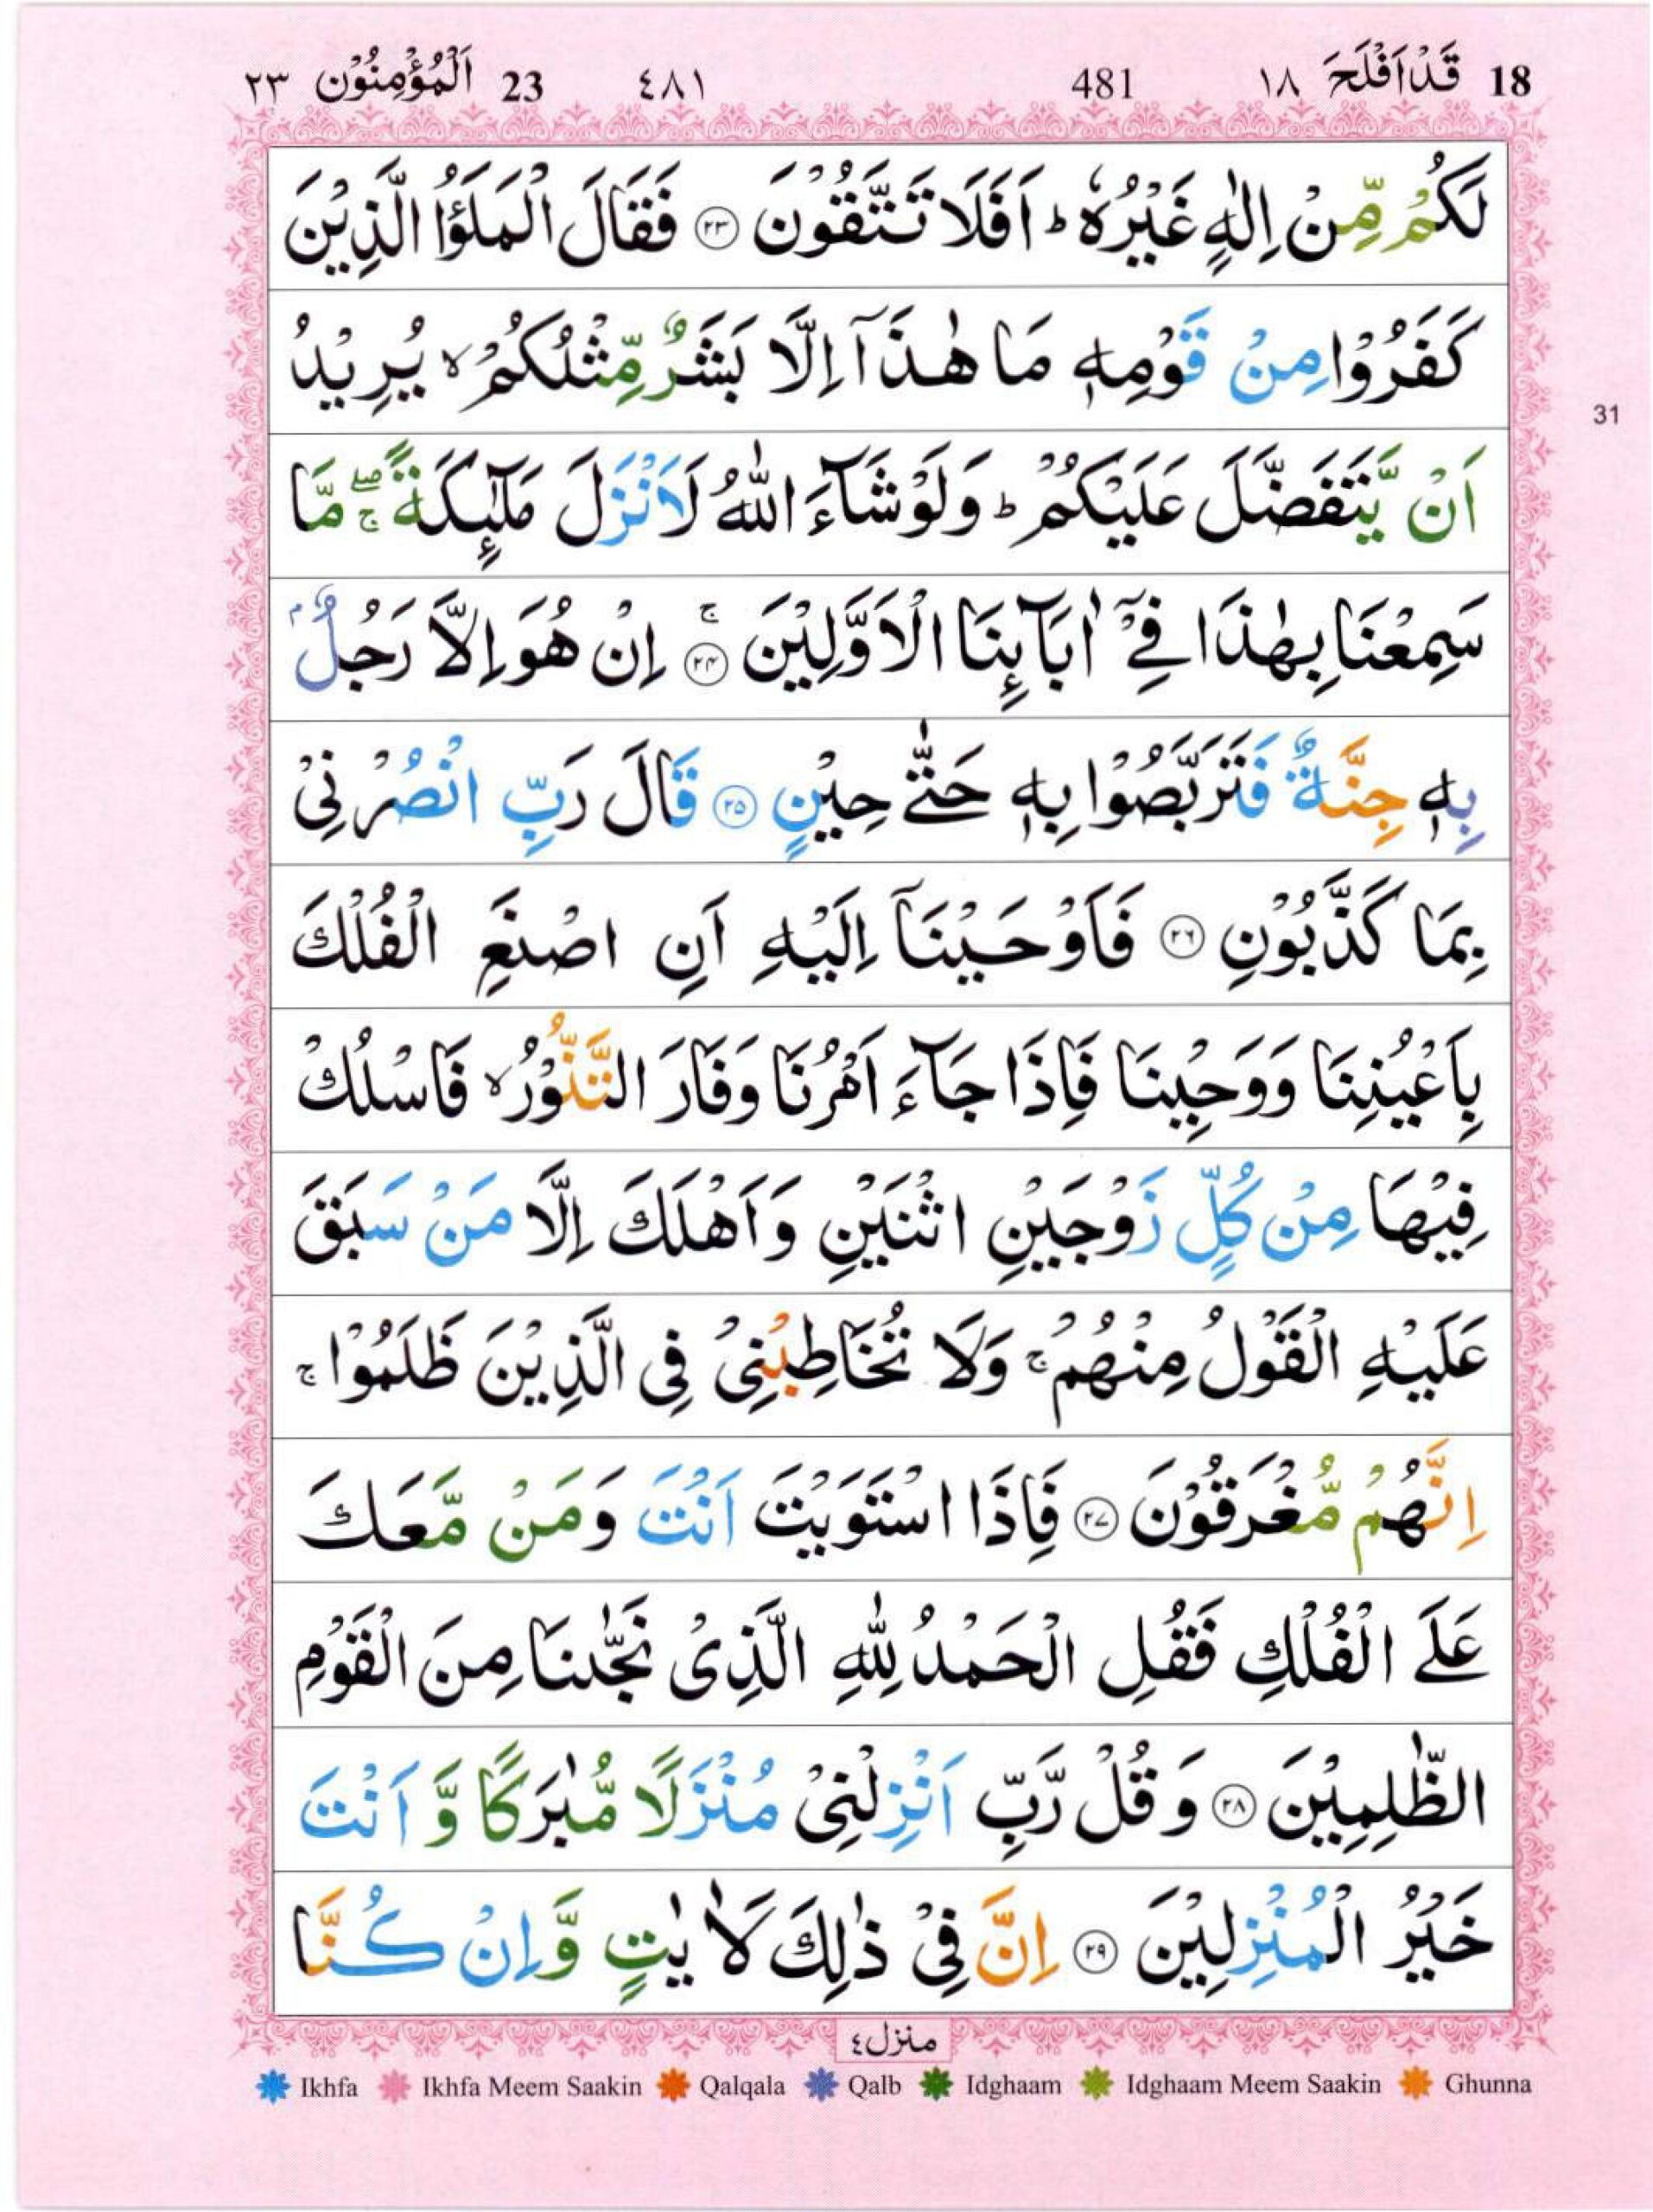 18 قَدْاَفْلَحَ ١٨ 481 ٤٨١ 23 اَلْمُؤْمِنُوْن ٢٣
لَكُمْ مِّنْ اِلٰهٍ غَيْرُهٗ ؕ اَفَلَا تَتَّقُوْنَ ﴿۲۳﴾ فَقَالَ الْمَلَؤُا الَّذِيْنَ
كَفَرُوْا مِنْ قَوْمِهٖ مَا هٰذَاۤ اِلَّا بَشَرٌ مِّثْلُكُمْ ۙ يُرِيْدُ
31
اَنْ يَّتَفَضَّلَ عَلَيْكُمْ ؕ وَلَوْ شَآءَ اللّٰهُ لَاَنْزَلَ مَلٰٓئِكَةً ۖۚ مَّا
سَمِعْنَا بِهٰذَا فِيْۤ اٰبَآئِنَا الْاَوَّلِيْنَ ﴿ۚ۲۴﴾ اِنْ هُوَ اِلَّا رَجُلٌۢ
بِهٖ جِنَّةٌ فَتَرَبَّصُوْا بِهٖ حَتّٰى حِيْنٍ ﴿۲۵﴾ قَالَ رَبِّ انْصُرْنِيْ
بِمَا كَذَّبُوْنِ ﴿۲۶﴾ فَاَوْحَيْنَاۤ اِلَيْهِ اَنِ اصْنَعِ الْفُلْكَ
بِاَعْيُنِنَا وَوَحْيِنَا فَاِذَا جَآءَ اَمْرُنَا وَفَارَ التَّنُّوْرُ ۙ فَاسْلُكْ
فِيْهَا مِنْ كُلٍّ زَوْجَيْنِ اثْنَيْنِ وَاَهْلَكَ اِلَّا مَنْ سَبَقَ
عَلَيْهِ الْقَوْلُ مِنْهُمْ ۚ وَلَا تُخَاطِبْنِيْ فِى الَّذِيْنَ ظَلَمُوْا ۚ
اِنَّهُمْ مُّغْرَقُوْنَ ﴿۲۷﴾ فَاِذَا اسْتَوَيْتَ اَنْتَ وَمَنْ مَّعَكَ
عَلَى الْفُلْكِ فَقُلِ الْحَمْدُ لِلّٰهِ الَّذِيْ نَجّٰىنَا مِنَ الْقَوْمِ
الظّٰلِمِيْنَ ﴿۲۸﴾ وَقُلْ رَّبِّ اَنْزِلْنِيْ مُنْزَلًا مُّبٰرَكًا وَّاَنْتَ
خَيْرُ الْمُنْزِلِيْنَ ﴿۲۹﴾ اِنَّ فِيْ ذٰلِكَ لَاٰيٰتٍ وَّاِنْ كُنَّا
منزل٤
Ikhfa Ikhfa Meem Saakin Qalqala Qalb Idghaam Idghaam Meem Saakin Ghunna